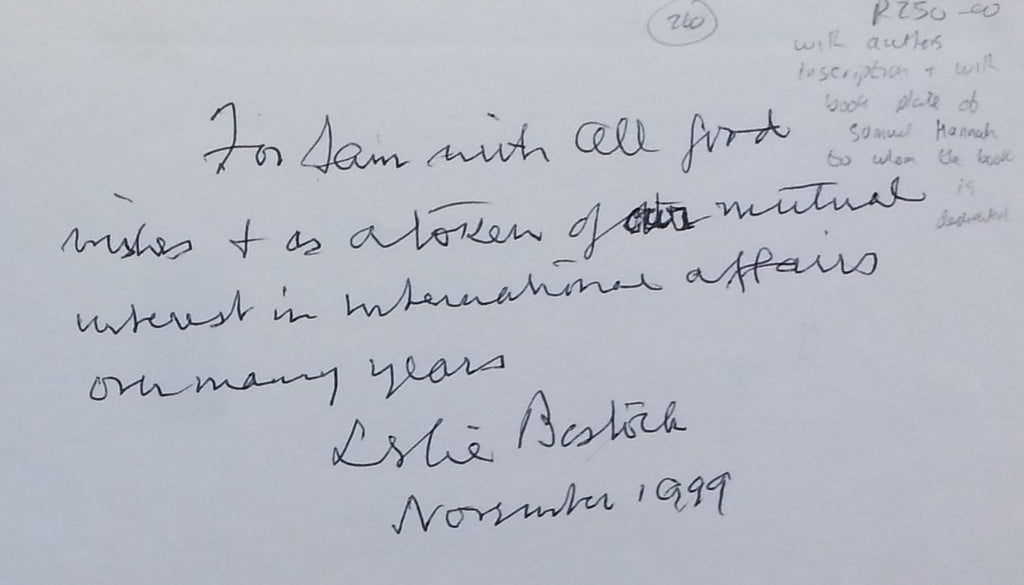 260
R250-00
with authors
inscription + with
book plate of
Samuel Hannah
to whom the book
is
dedicated
For Sam with all good
wishes + as a token of our mutual
interest in international affairs
over many years
Leslie Bostock
November 1999